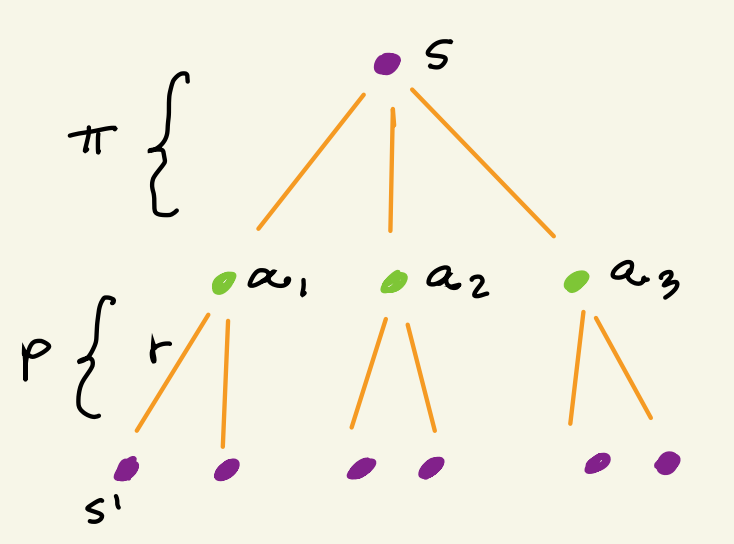 s
π {
a1 a2 a3
p { r
s'